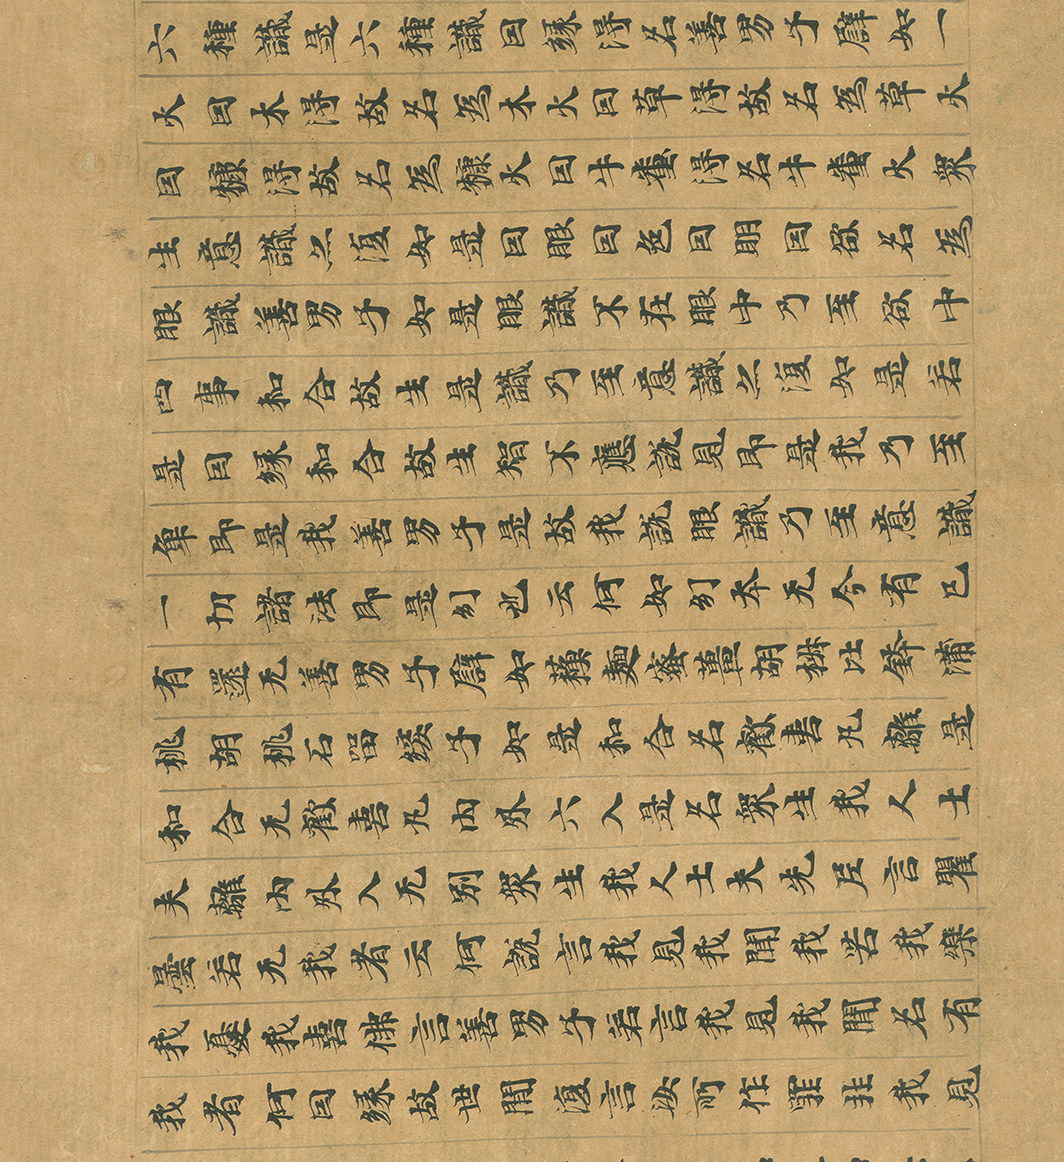 六種識是六種識因緣淂名善男子譬如一
火因木淂故名為木火因草淂故名為草火
因糠淂故名為糠火因牛糞淂名牛糞火衆
生意識亦復如是因眼因色因明因欲名為
眼識善男子如是眼識不在眼中乃至欲中
四事和合故生是識乃至意識亦復如是若
是因緣和合故生智不應說見即是我乃至
即是我善男子是故我說眼識乃至意識
一切諸法即是幻也云何如幻本无今有已
有還无善男子譬如蘇麵蜜薑胡椒比鉢蒲
桃胡桃石留桵子如是和合名歡喜丸離是
和合无歡喜丸內外六入是名衆生我人士
夫離內外入无別衆生我人士夫先尼言瞿
曇若无我者云何說言我見我聞我苦我樂
我憂我喜佛言善男子若言我見我聞名有
我者何因緣故世間復言汝所作罪非我見